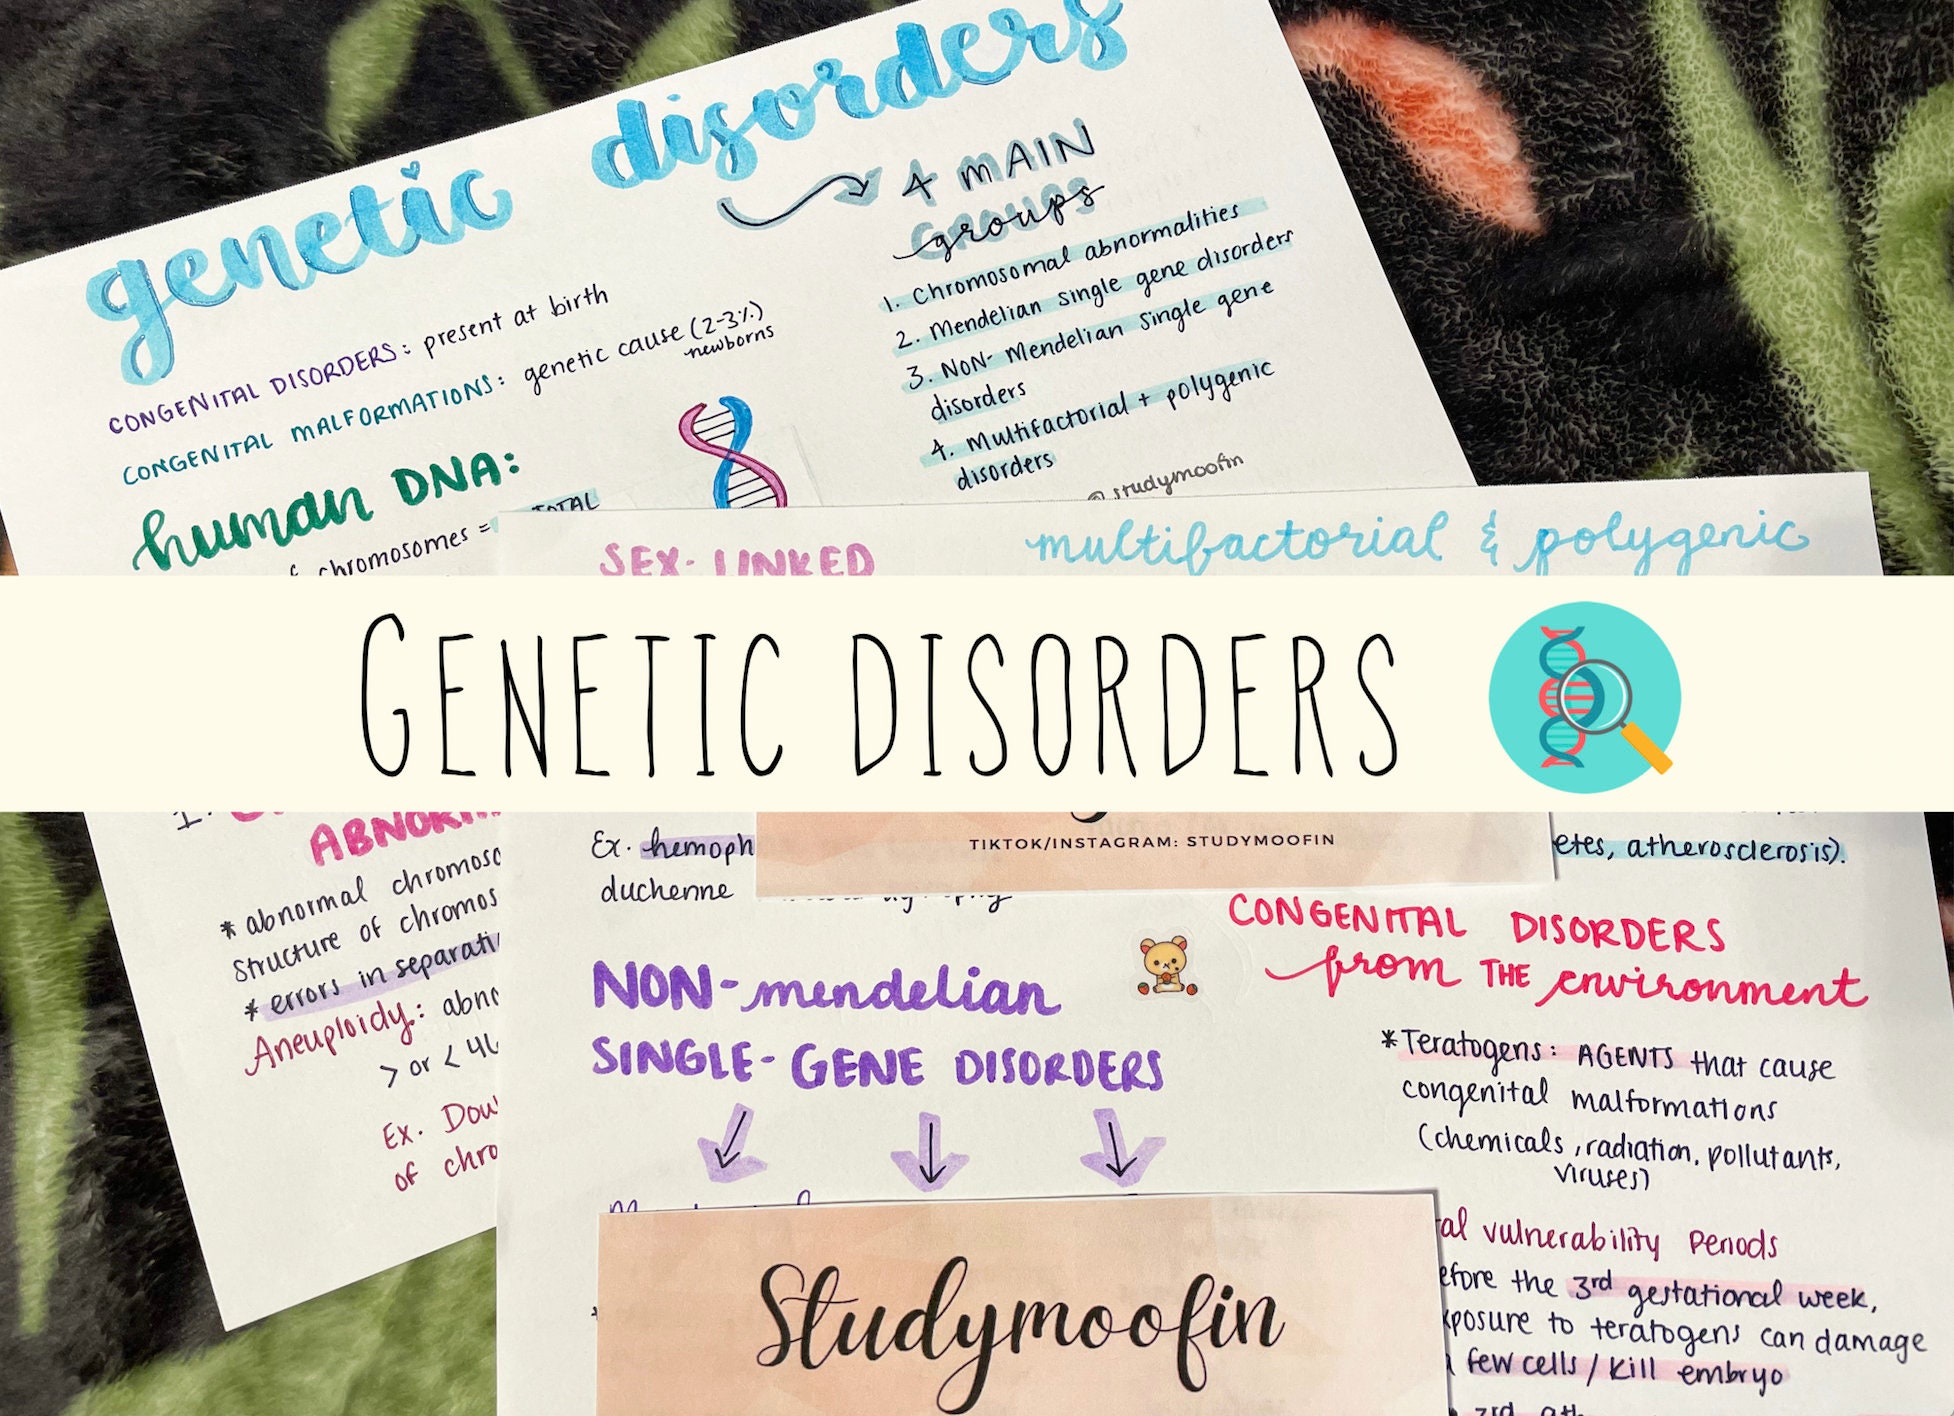 genetic disorders
4 MAIN
groups
1. Chromosomal abnormalities
2. Mendelian single gene disorders
3. NON-Mendelian single gene
disorders
4. Multifactorial + polygenic
disorders
@studymoofin
CONGENITAL DISORDERS: present at birth
CONGENITAL MALFORMATIONS: genetic cause (2-3%)
newborns
human DNA:
chromosomes = TOTAL
SEX-LINKED
multifactorial & polygenic
GENETIC DISORDERS
1.
* abnormal
structure of
* errors in
Aneuploidy:
> or < 46
Ex.
of
Ex.
duchenne
TIKTOK/INSTAGRAM: STUDYMOOFIN
atherosclerosis).
NON-mendelian
SINGLE-GENE DISORDERS
CONGENITAL DISORDERS
from THE environment
*Teratogens: AGENTS that cause
congenital malformations
(chemicals, radiation, pollutants,
viruses)
vulnerability Periods
the 3rd gestational week,
to teratogens can damage
few cells / kill embryo
Studymoofin